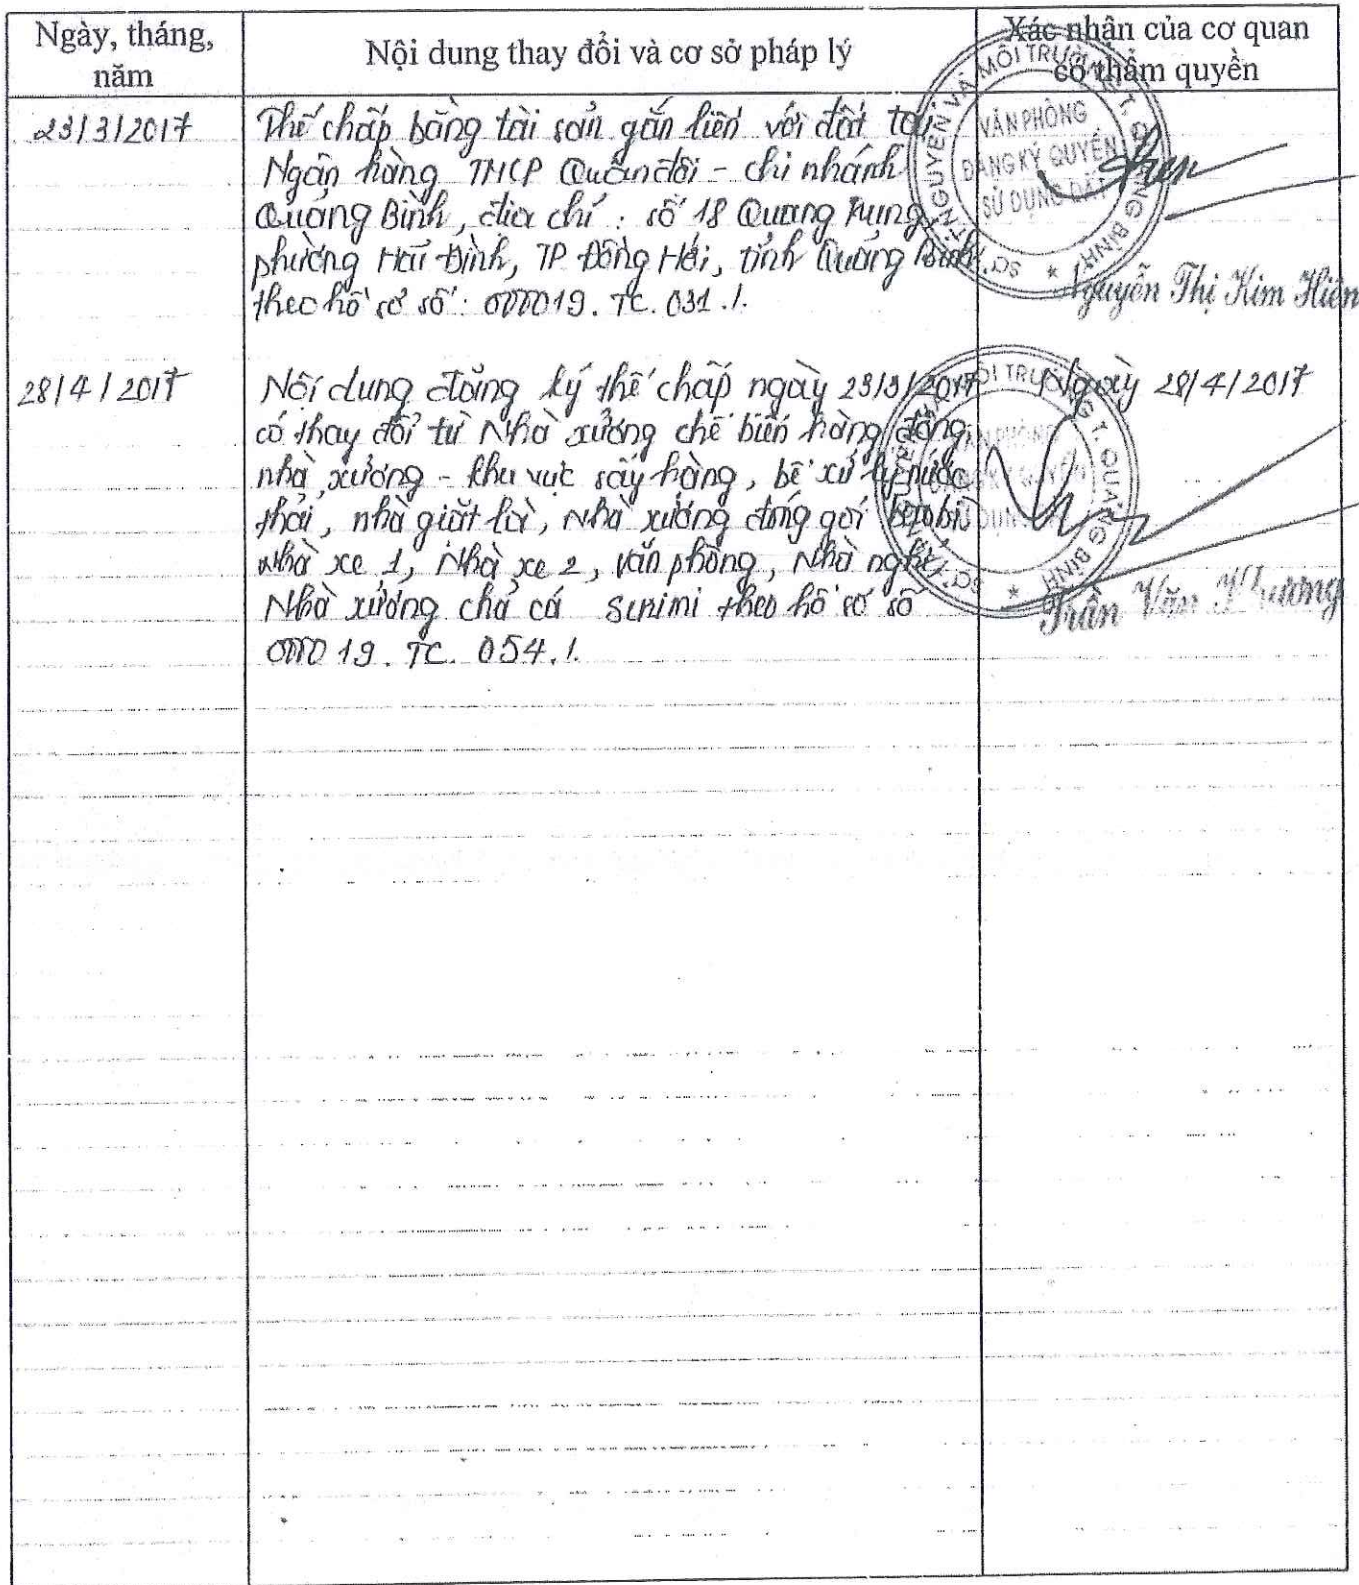 Ngày, tháng, năm
Nội dung thay đổi và cơ sở pháp lý
Xác nhận của cơ quan có thẩm quyền
23/3/2017
Thế chấp bằng tài sản gắn liền với đất tại
Ngân hàng TMCP Quân đội - chi nhánh
Quảng Bình, địa chỉ: số 18 Quang Trung,
phường Hải Đình, TP Đồng Hới, tỉnh Quảng Bình
theo hồ sơ số: 000019.TC.031.1.
SỞ TÀI NGUYÊN VÀ MÔI TRƯỜNG T. QUẢNG BÌNH
VĂN PHÒNG
ĐĂNG KÝ QUYỀN
SỬ DỤNG ĐẤT
Nguyễn Thị Kim Hiền
28/4/2017
Nội dung đăng ký thế chấp ngày 23/3/2017
có thay đổi từ Nhà xưởng chế biến hàng đông,
nhà xưởng - khu vực sấy hàng, bể xử lý nước
thải, nhà giặt là, nhà xưởng đóng gói bao bì,
nhà xe 1, Nhà xe 2, văn phòng, Nhà nghỉ,
Nhà xưởng chả cá Surimi theo hồ sơ số
000019.TC.054.1.
Ngày 28/4/2017
MÔI TRƯỜNG T. QUẢNG BÌNH
Trần Văn